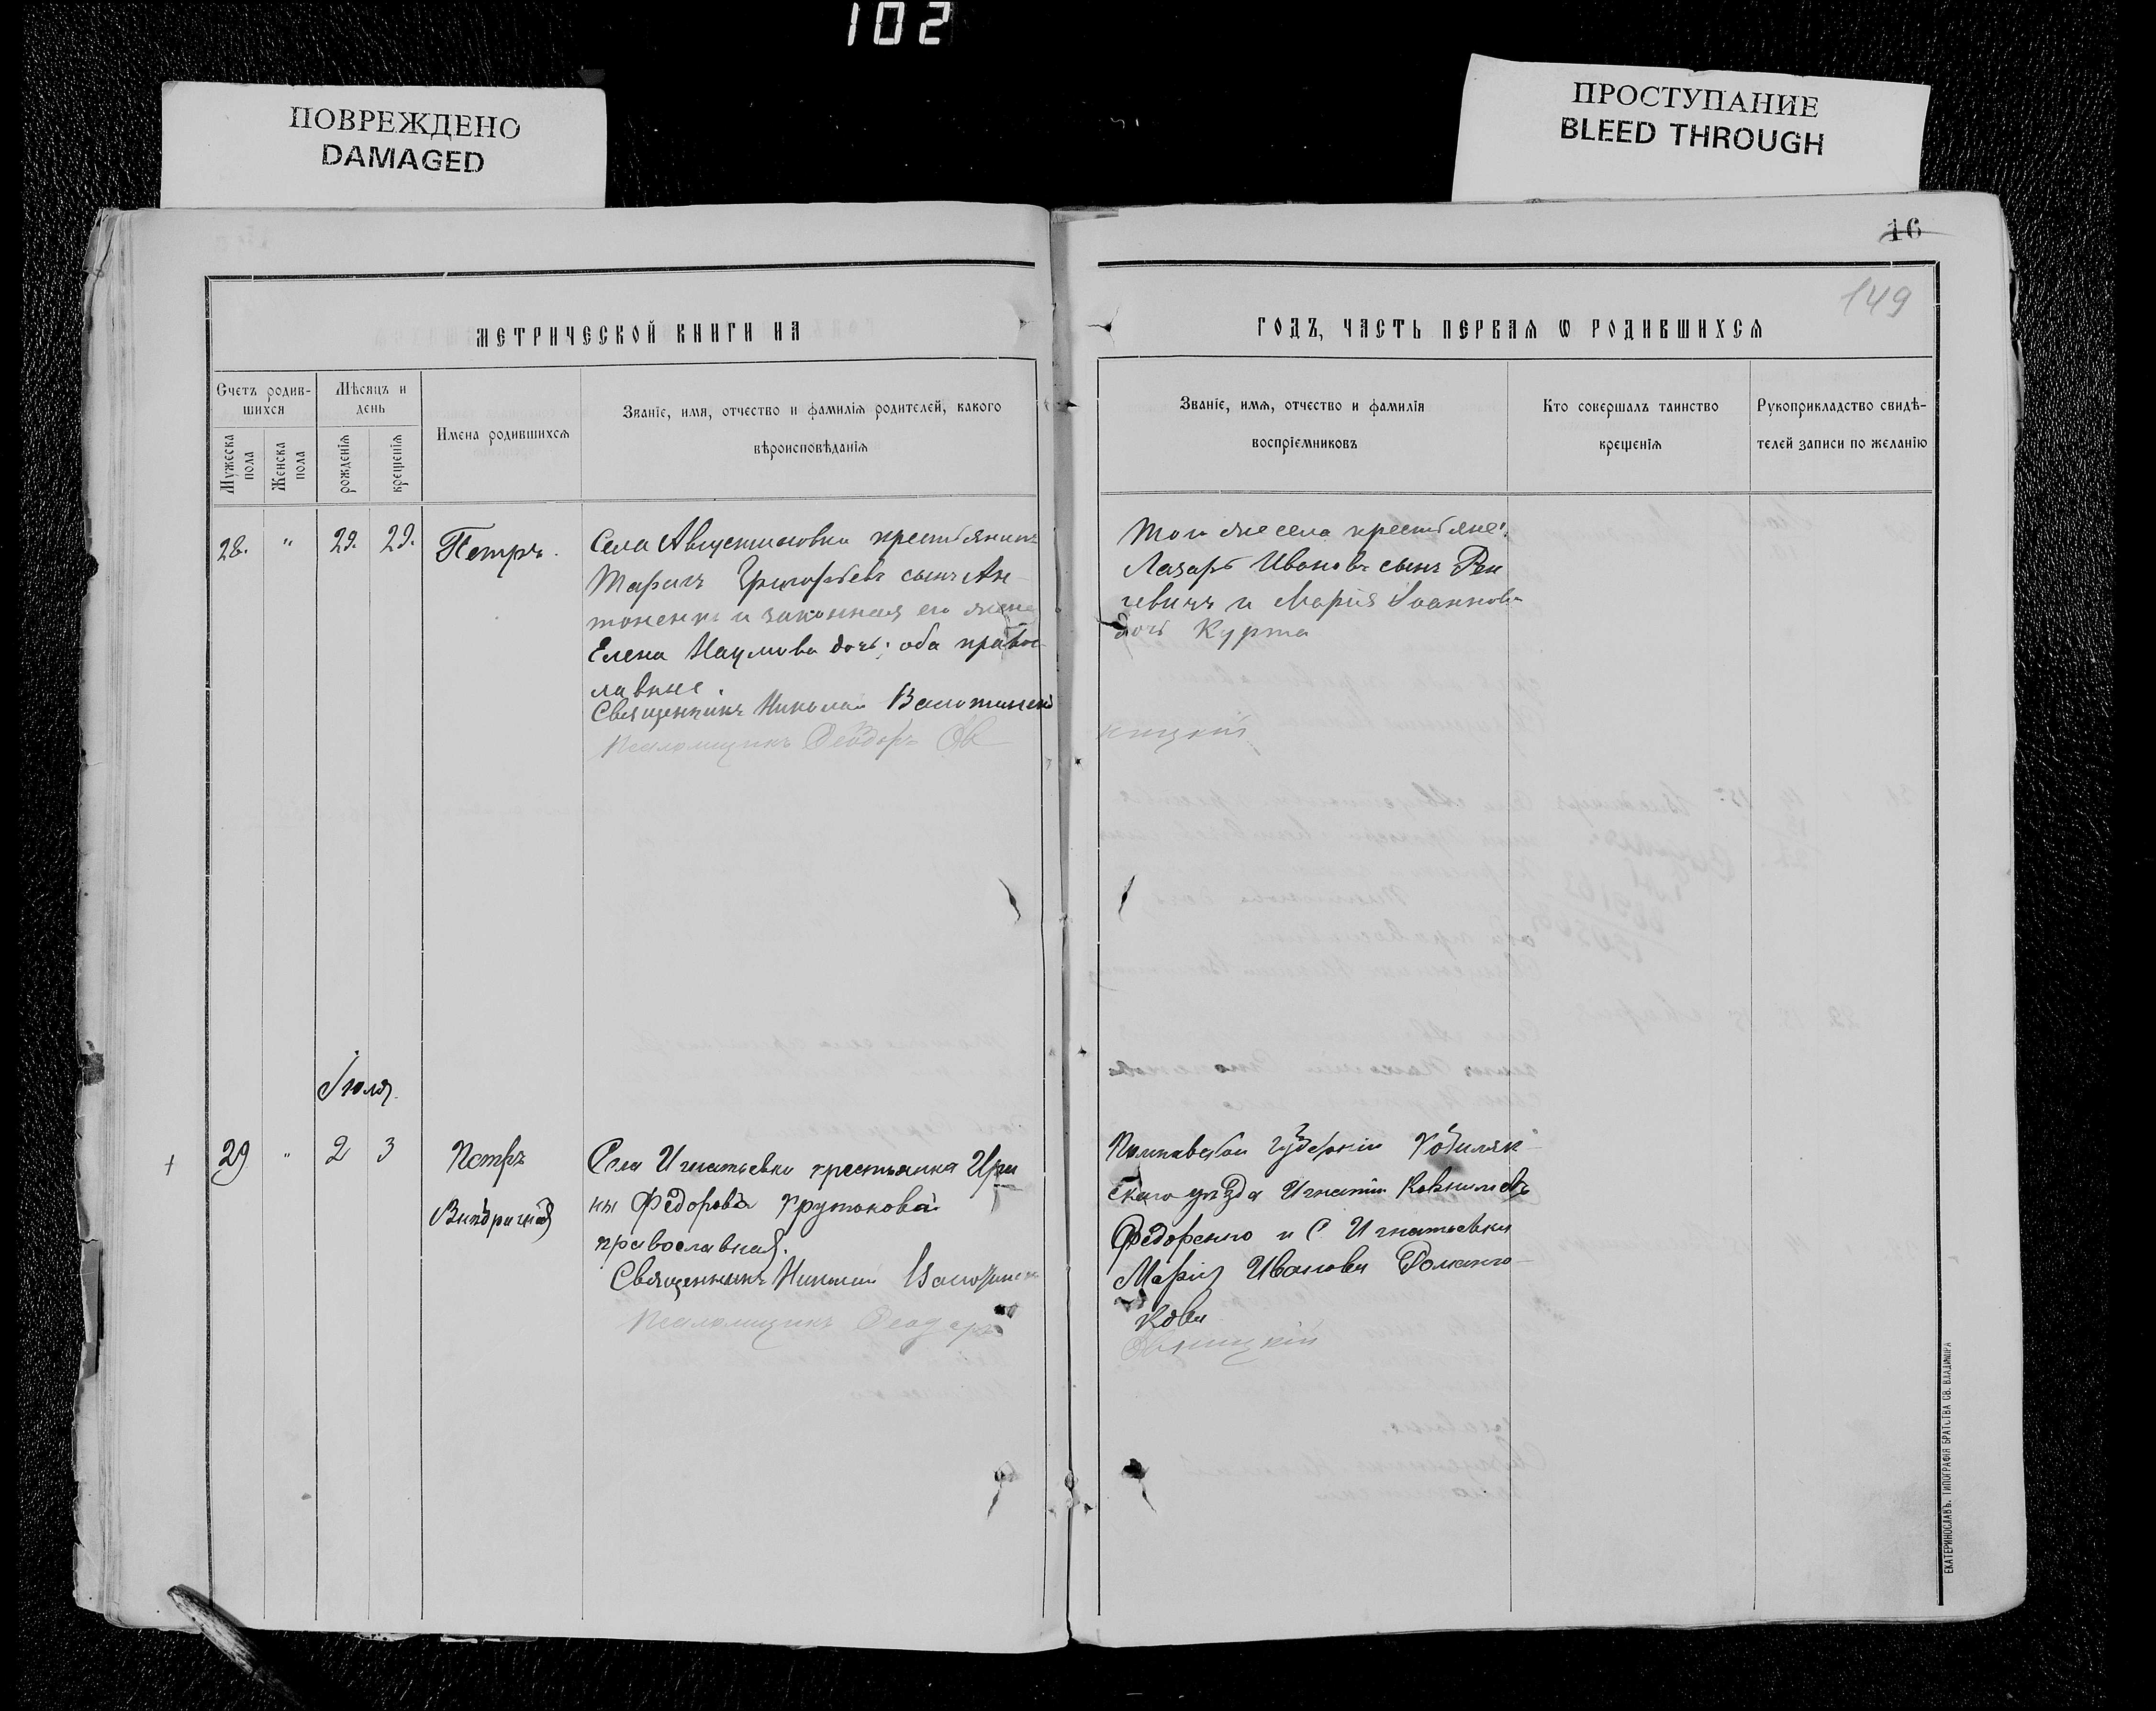 102
ПОВРЕЖДЕНО
DAMAGED
ПРОСТУПАНИЕ
BLEED THROUGH
16
149
МЕТРИЧЕСКОЙ КНИГИ НА
ГОДЪ, ЧАСТЬ ПЕРВАЯ Ѡ РОДИВШИХСЯ
Счетъ родив-
шихся
Мужеска
пола
Женска
пола
Мѣсяцъ и
день
рожденія
крещенія
Имена родившихся
Званіе, имя, отчество и фамилія родителей, какого
вѣроисповѣданія
Званіе, имя, отчество и фамилія
воспріемниковъ
Кто совершалъ таинство
крещенія
Рукоприкладство свидѣ-
телей записи по желанію
28. " 29. 29. Петръ.
Села Августиновки крестьянинъ
Григорьевъ сынъ Ан-
тоненко и законная его жена
Елена Наумова дочь; оба правос-
лавные.
Священникъ Николай
Псаломщикъ Ѳеодоръ
Того же села крестьяне:
Лазарь Ивановъ сынъ
и Марія Іоаннова
дочь Курта
Іюля.
29 " 2 3 Петръ
Села Игнатьевки крестьянка Ири
на Федорова
православная.
Священникъ Николай
Псаломщикъ Ѳеодоръ
Полтавской губерніи Кобиляк-
скаго уѣзда Игнатій
Федоренко и С Игнатьевки
Марія Иванова
кова
ЕКАТЕРИНОСЛАВЪ. ТИПОГРАФІЯ БРАТСТВА СВ. ВЛАДИМІРА